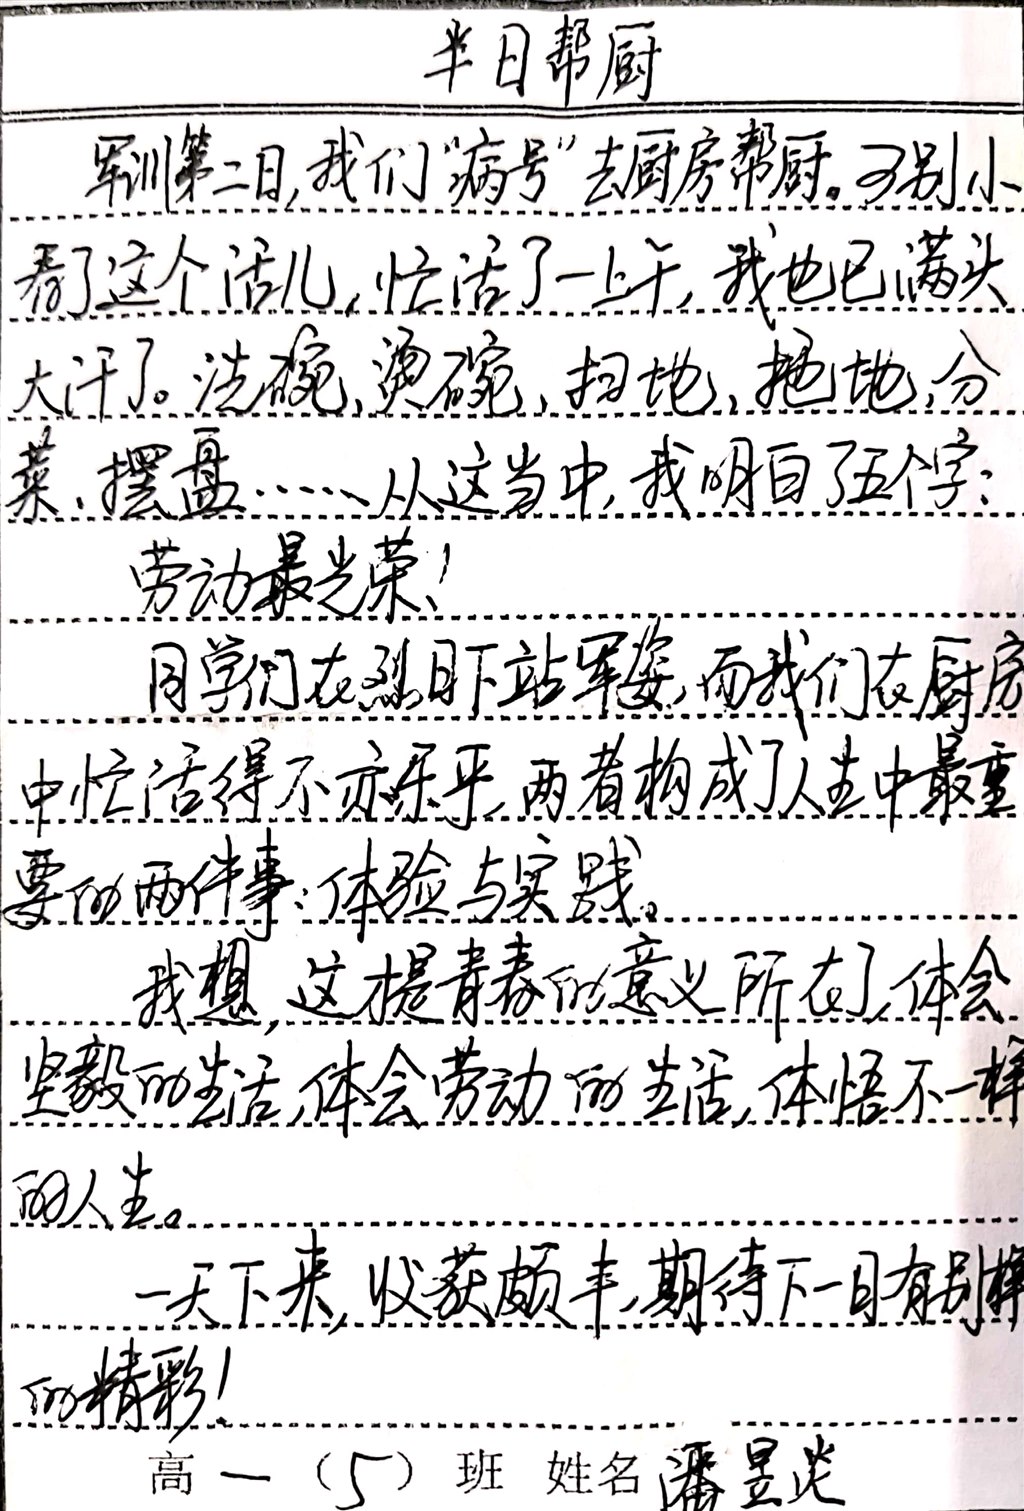 半日帮厨
军训第二日,我们“病号”去厨房帮厨。可别小
看了这个活儿,忙活了一上午,我也已满头
大汗了。洗碗,烫碗,扫地,拖地,分
菜,摆盘……从这当中,我明白了五个字:
劳动最光荣!
同学们在烈日下站军姿,而我们在厨房
中忙活得不亦乐乎,两者构成了人生中最重
要的两件事:体验与实践。
我想,这才是青春的意义所在了,体会
坚毅的生活,体会劳动的生活,体悟不一样
的人生。
一天下来,收获颇丰,期待下一日有别样
的精彩!
高一(5)班 姓名潘昱炎